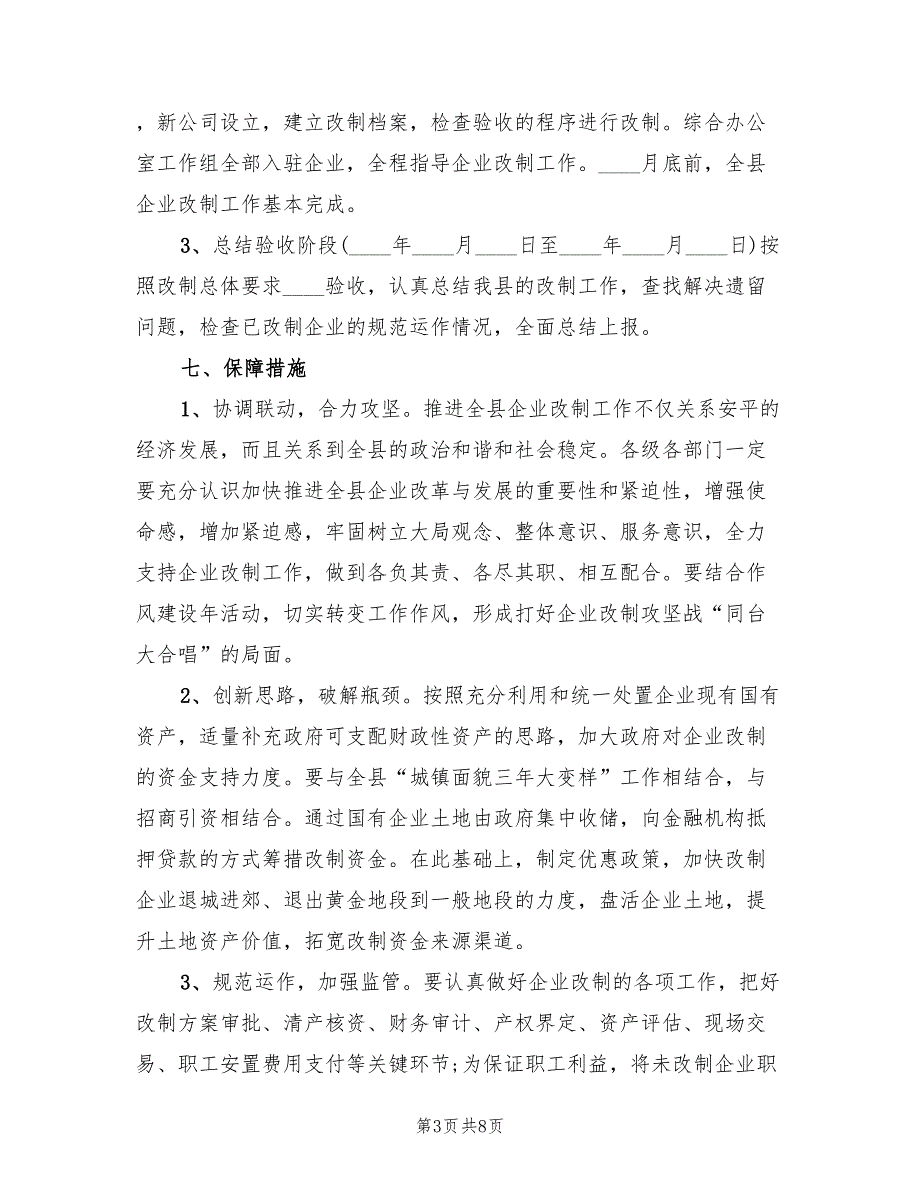 ，新公司设立，建立改制档案，检查验收的程序进行改制。综合办公
室工作组全部入驻企业，全程指导企业改制工作。____月底前，全县
企业改制工作基本完成。
3、总结验收阶段(____年____月____日至____年____月____日)按
照改制总体要求____验收，认真总结我县的改制工作，查找解决遗留
问题，检查已改制企业的规范运作情况，全面总结上报。
七、保障措施
1、协调联动，合力攻坚。推进全县企业改制工作不仅关系安平的
经济发展，而且关系到全县的政治和谐和社会稳定。各级各部门一定
要充分认识加快推进全县企业改革与发展的重要性和紧迫性，增强使
命感，增加紧迫感，牢固树立大局观念、整体意识、服务意识，全力
支持企业改制工作，做到各负其责、各尽其职、相互配合。要结合作
风建设年活动，切实转变工作作风，形成打好企业改制攻坚战“同台
大合唱”的局面。
2、创新思路，破解瓶颈。按照充分利用和统一处置企业现有国有
资产，适量补充政府可支配财政性资产的思路，加大政府对企业改制
的资金支持力度。要与全县“城镇面貌三年大变样”工作相结合，与
招商引资相结合。通过国有企业土地由政府集中收储，向金融机构抵
押贷款的方式筹措改制资金。在此基础上，制定优惠政策，加快改制
企业退城进郊、退出黄金地段到一般地段的力度，盘活企业土地，提
升土地资产价值，拓宽改制资金来源渠道。
3、规范运作，加强监管。要认真做好企业改制的各项工作，把好
改制方案审批、清产核资、财务审计、产权界定、资产评估、现场交
易、职工安置费用支付等关键环节;为保证职工利益，将未改制企业职
第3页 共8页